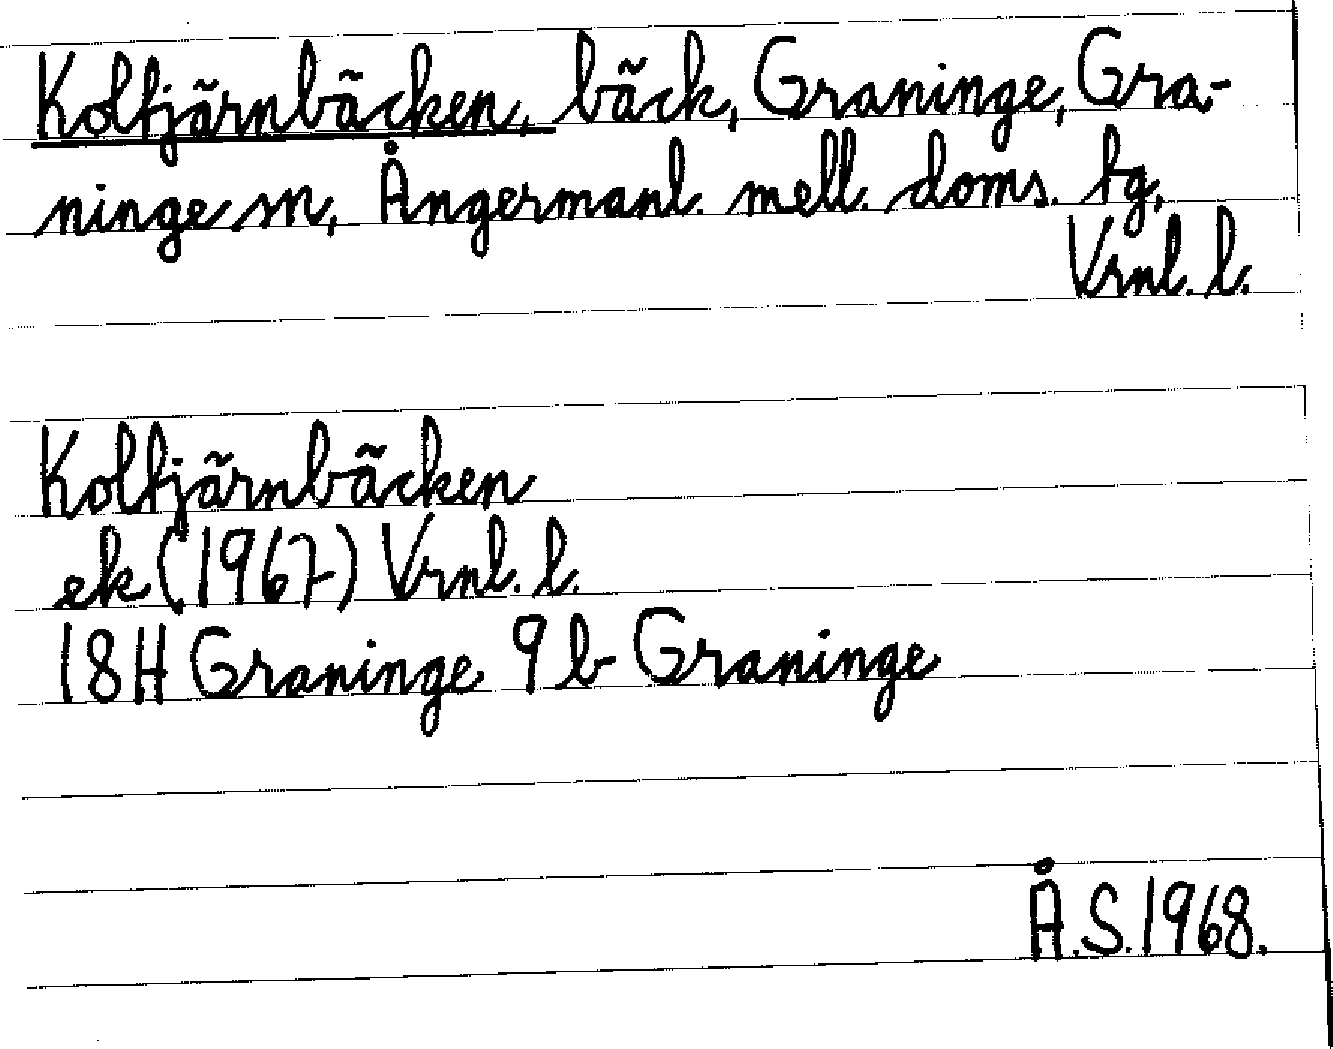 Koltjärnbäcken, bäck, Graninge, Gra-
ninge sn, Ångermanl. mell. doms. tg,
Vrnl. l.
Koltjärnbäcken
ek (1967) Vrnl. l.
18H Graninge 9 b Graninge
Å.S. 1968.